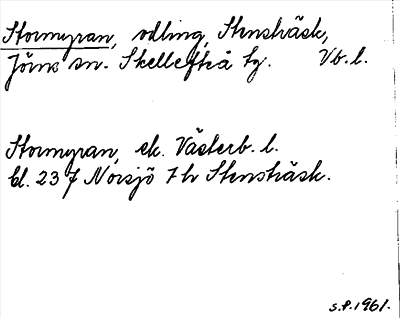 Stormyran, odling, Stensträsk,
Jörns sn. Skellefteå tg. Vb. l.
Stormyran, ek. Västerb. l.
bl. 23 7 Norsjö 7 h Stensträsk.
S.P. 1961.